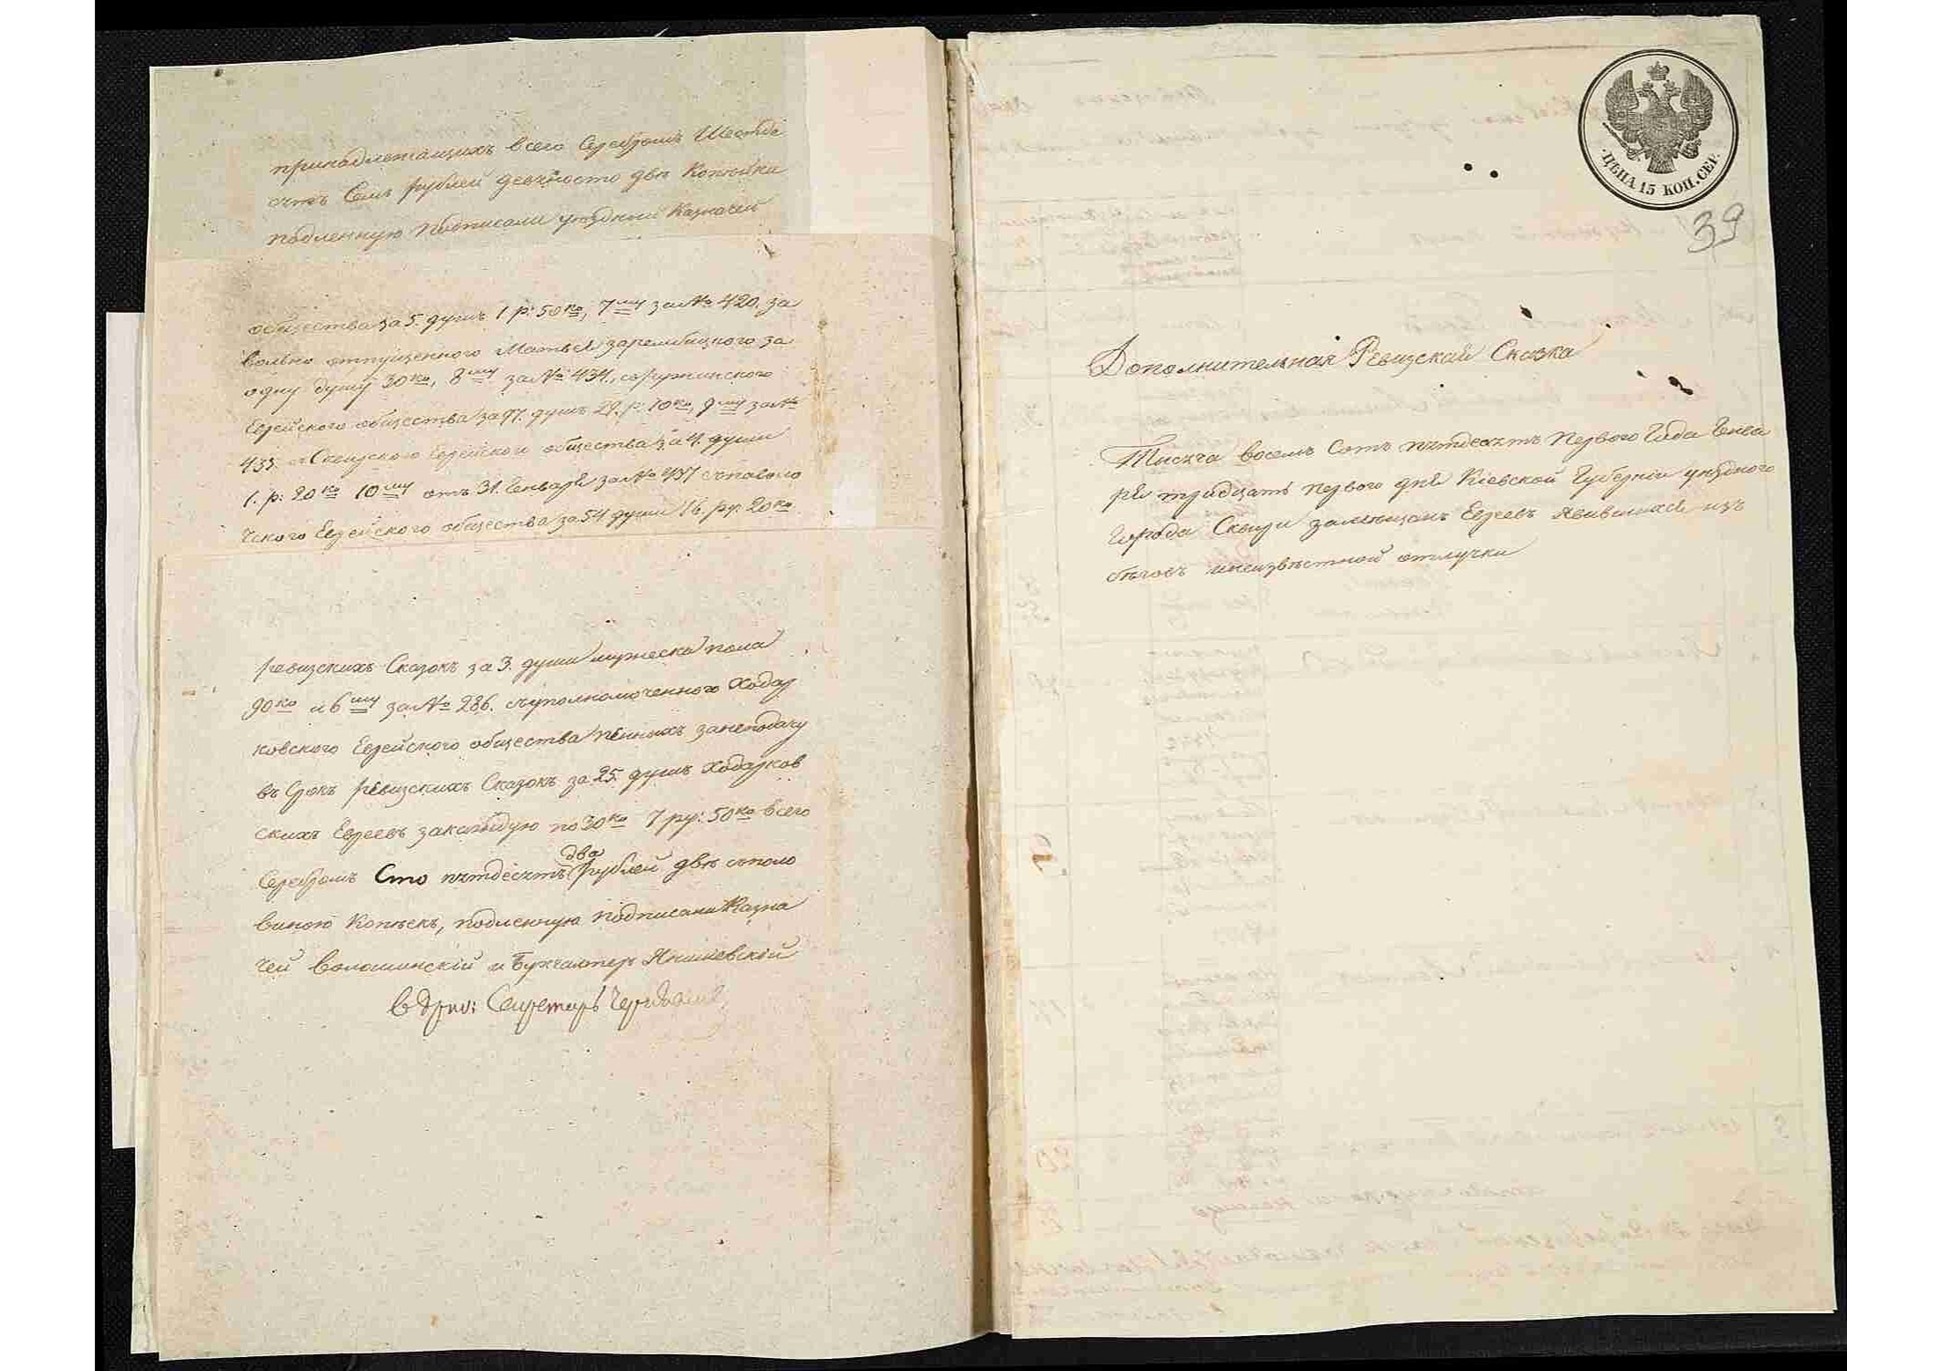 принадлежащихъ всего Серебромъ Шестьде
сятъ Семь рублей девяносто двѣ Копѣйки
подленную Подписали уѣздный Казначей
общества за 5. душъ 1 р: 50 ко, 7му за № 420. за
вольно отпущенного Матвея зарембицкого за
одну душу 30 ко, 8му за № 434., съ ружинского
Еврейского общества за 97. душъ 29. р. 10 ко, 9му за №
435. съ Сквирского Еврейского общества за 4. души
1. р: 20 ко 10му отъ 31. Генваря за № 437 съ паволо
чского Еврейского общества за 54 души 16. ру. 20 ко
ревизскихъ Сказокъ за 3. души мужеска пола
90 ко и 6му за № 286. съ уполномоченного Ходор
ковского Еврейского общества пѣнныхъ занеподачу
въ Срокъ ревизскихъ Сказокъ за 25. душъ Ходорков
скихъ Евреевъ закаждую по 30 ко 7 ру: 50 ко всего
Серебромъ Сто пятдесятъ два рублей двѣ съ поло
виною Копѣекъ, подленную подписали Казна
чей Волошинскій и Бухгалтеръ Янишевскій
Секретарь
ЦѢНА 15 КОП. СЕР.
39
Дополнительная Ревизская Сказка
Тысяча восемь Сотъ пятдесятъ первого Года Генва
ря тридцать первого дня Кіевской Губерніи уѣздного
Города Сквири замѣщанъ Евреевъ явившихся изъ
бѣговъ инеизвѣстной отлучки